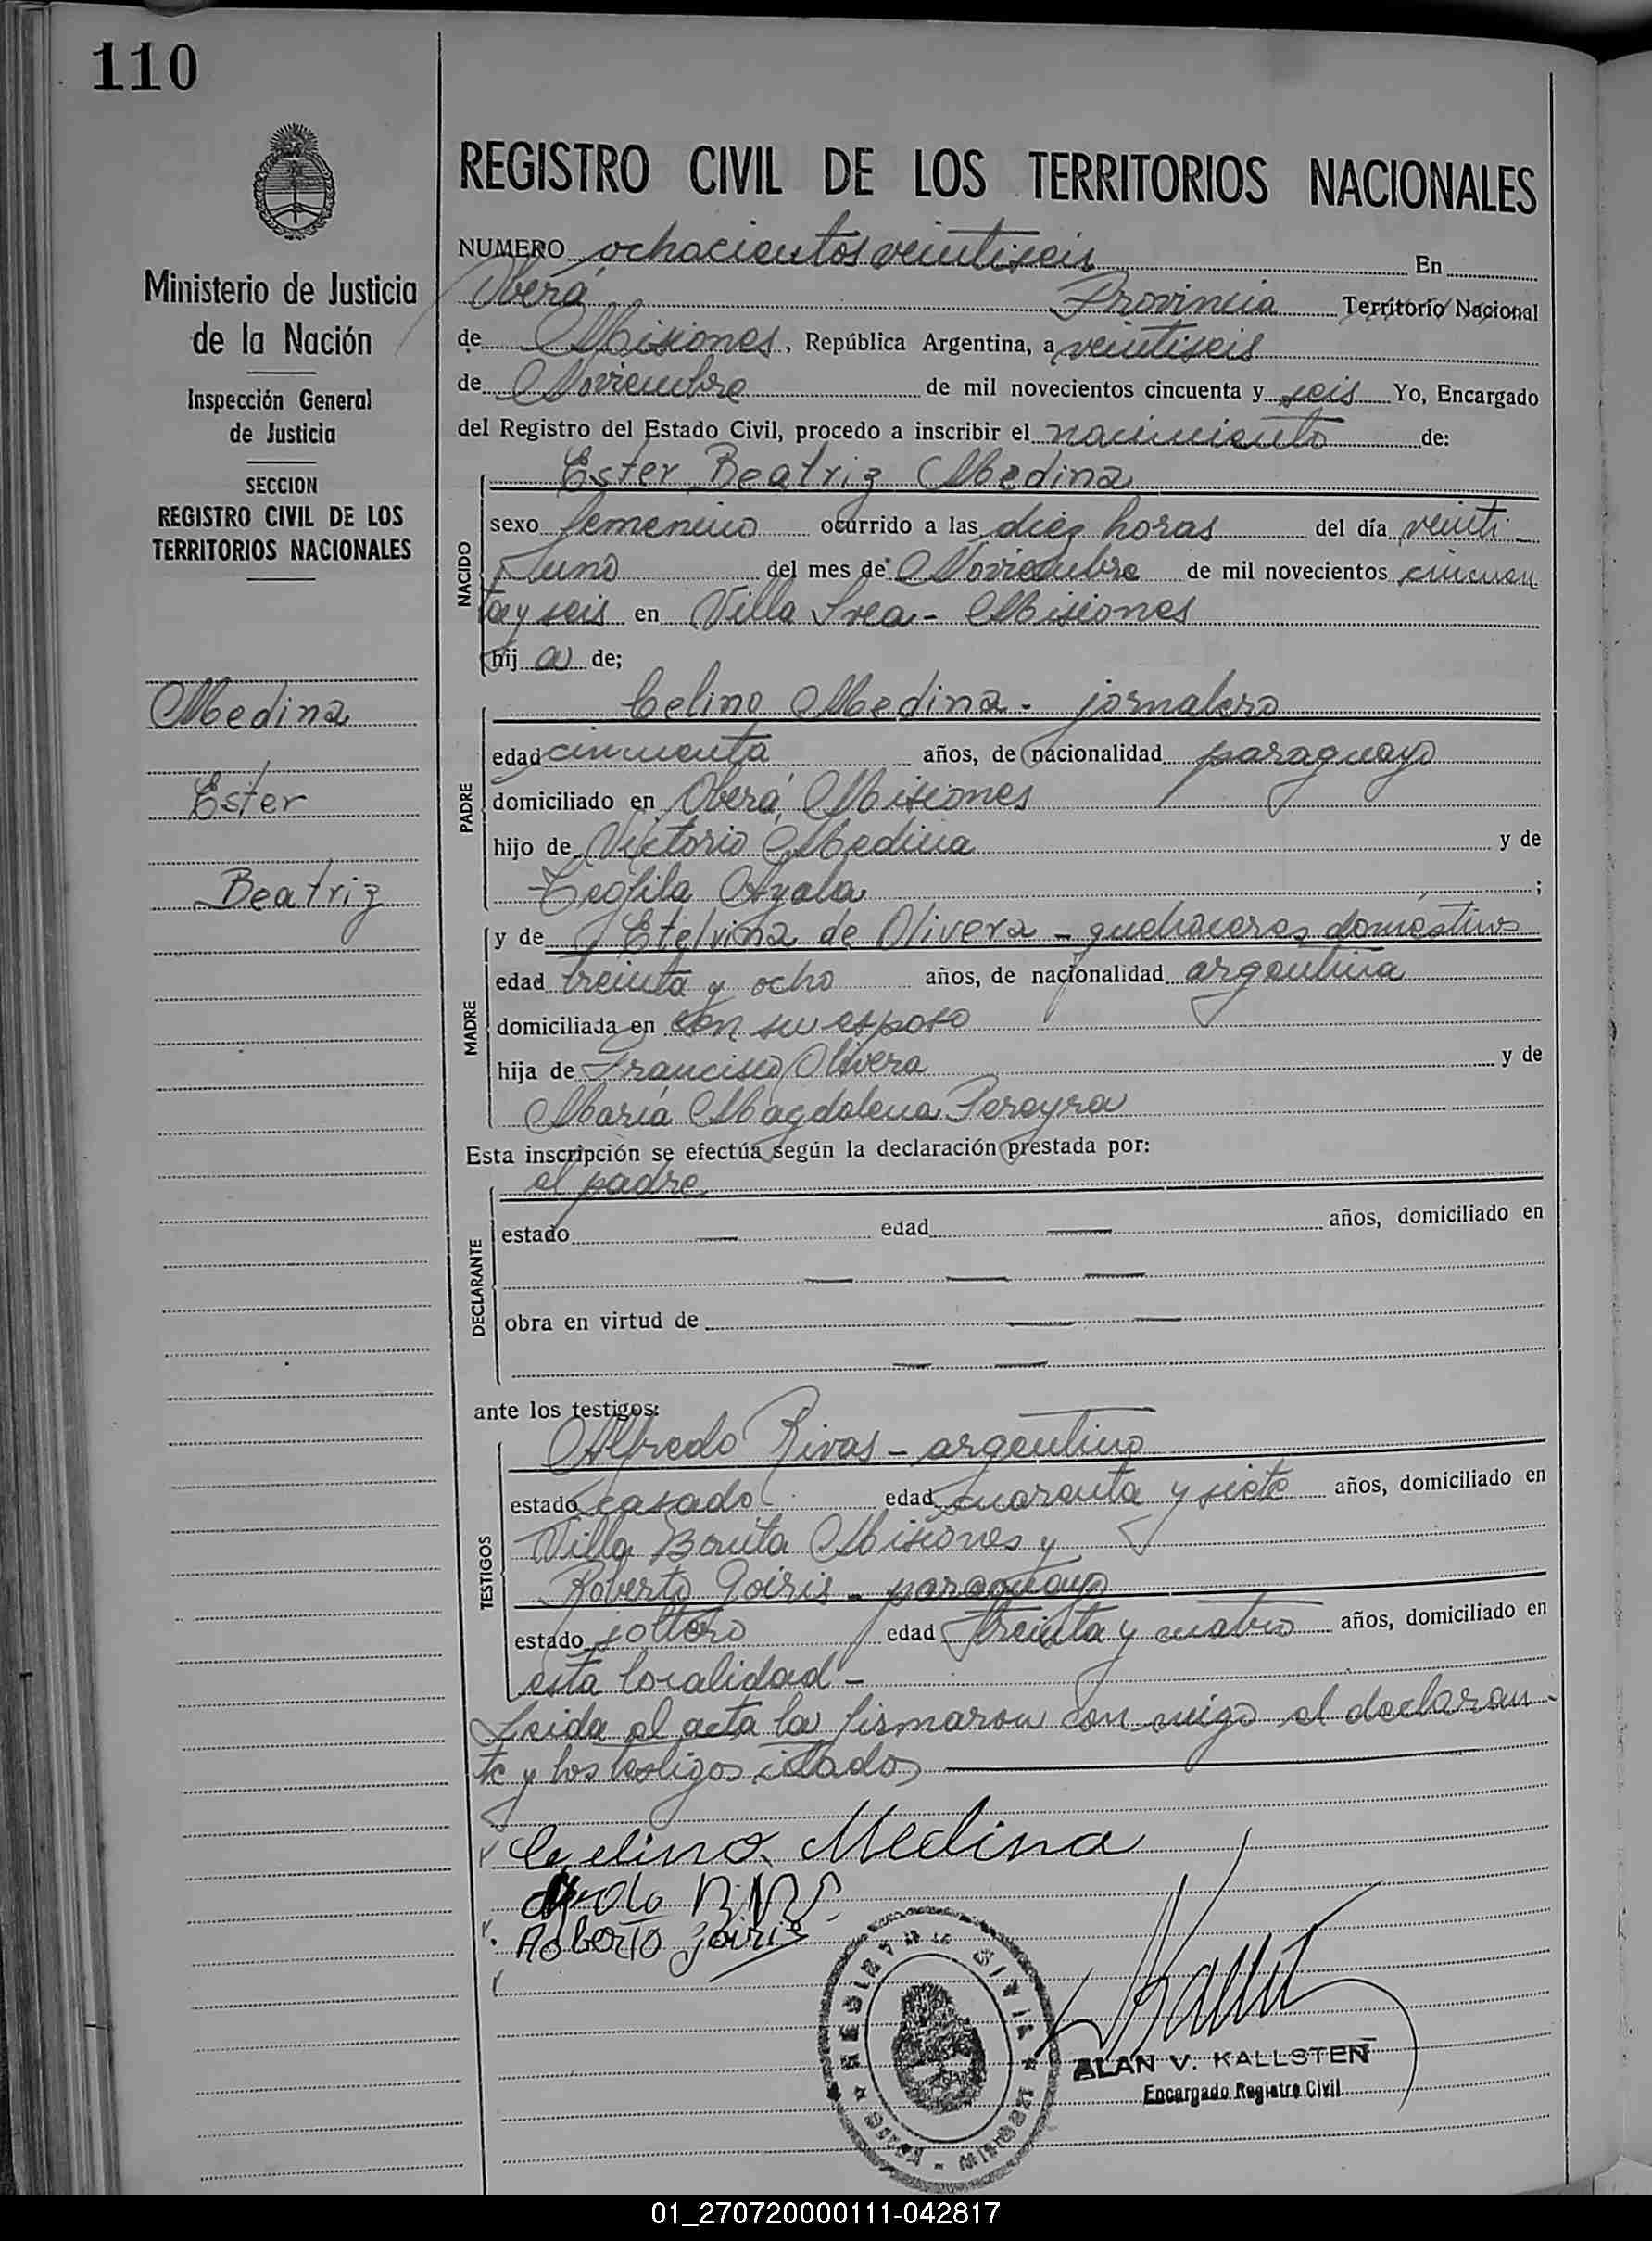 110
Ministerio de Justicia
de la Nación
Inspección General
de Justicia
SECCION
REGISTRO CIVIL DE LOS
TERRITORIOS NACIONALES
Medina
Ester
Beatriz
REGISTRO CIVIL DE LOS TERRITORIOS NACIONALES
NUMERO ochocientos veintiseis En
Oberá Provincia Territorio Nacional
de Misiones, República Argentina, a veintiseis
de Noviembre de mil novecientos cincuenta y seis Yo, Encargado
del Registro del Estado Civil, procedo a inscribir el nacimiento de:
NACIDO
Ester Beatriz Medina
sexo femenino ocurrido a las diez horas del día veinti-
uno del mes de Noviembre de mil novecientos cincuen
ta y seis en Villa Svea - Misiones
hij a de;
PADRE
Celino Medina - jornalero
edad cincuenta años, de nacionalidad paraguayo
domiciliado en Oberá, Misiones
hijo de Victorio Medina y de
Teofila Ayala ;
MADRE
y de Etelvina de Olivera - quehaceres domésticos
edad treinta y ocho años, de nacionalidad argentina
domiciliada en con su esposo
hija de Francisco Olivera y de
María Magdalena Pereyra
Esta inscripción se efectúa según la declaración prestada por:
DECLARANTE
el padre
estado — edad — años, domiciliado en
— — —
obra en virtud de — —
— —
ante los testigos:
TESTIGOS
Alfredo Rivas - argentino
estado casado edad cuarenta y siete años, domiciliado en
Villa Bonita Misiones y
Roberto Goiris - paraguayo
estado soltero edad treinta y cuatro años, domiciliado en
esta localidad -
Leida el acta la firmaron con migo el declaran-
te y los testigos citados
Celino Medina
Roberto Goiris
REGISTRO CIVIL
OBERA - MISIONES
ALAN V. KALLSTEN
Encargado Registro Civil
01_270720000111-042817